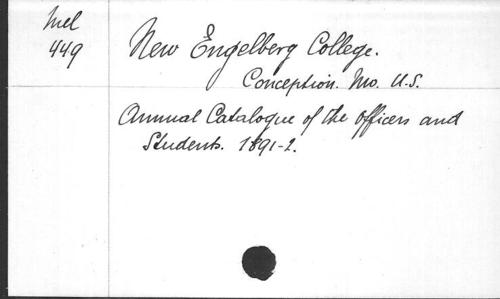 Mel
449
New Engelberg College.
Conception. Mo. U.S.
Annual Catalogue of the officers and
Students. 1891-2.